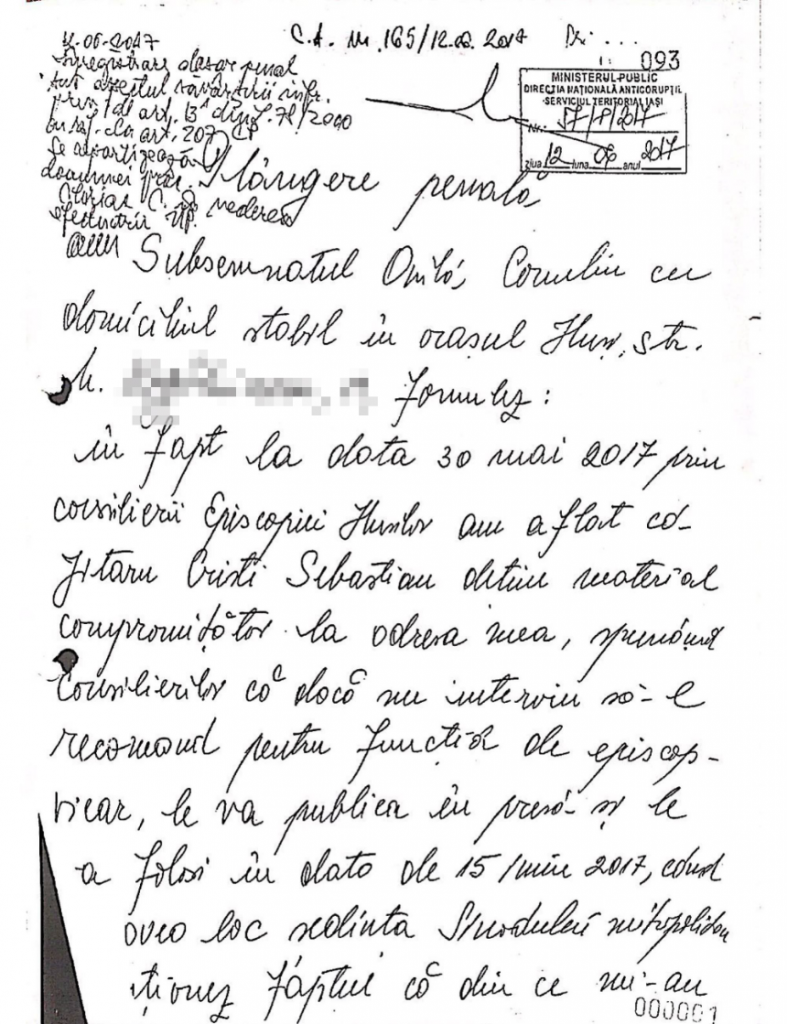 C.A. nr. 165/12.06.2017
093
MINISTERUL PUBLIC
DIRECȚIA NAȚIONALĂ ANTICORUPȚIE
SERVICIUL TERITORIAL IAȘI
Nr. 57/P/2017
ziua 12 luna 06 anul 2017
12.06.2017
Înregistrare dosar penal
sub aspectul săvârșirii infr.
prev. de art. 13¹ din L. 78/2000
cu rap. la art. 207 CP
Se repartizează
doamnei proc.
C. vederea
efectuării UP.
Plângere penală
Subsemnatul Onilă Corneliu cu
domiciliul stabil în orașul Huși, str.
formulez:
în fapt la data 30 mai 2017 prin
consilierii Episcopiei Hușilor am aflat că-
Jitaru Cristi Sebastian detine material
compromițător la adresa mea, spunând
Consilierilor că dacă nu intervin să-l
recomand pentru funcția de episcop-
vicar, le va publica în presă și le
a folosi în data de 15 iunie 2017, când
avea loc sedinta Sinodului mitropolitan
ționez faptul că din ce mi-au
000001